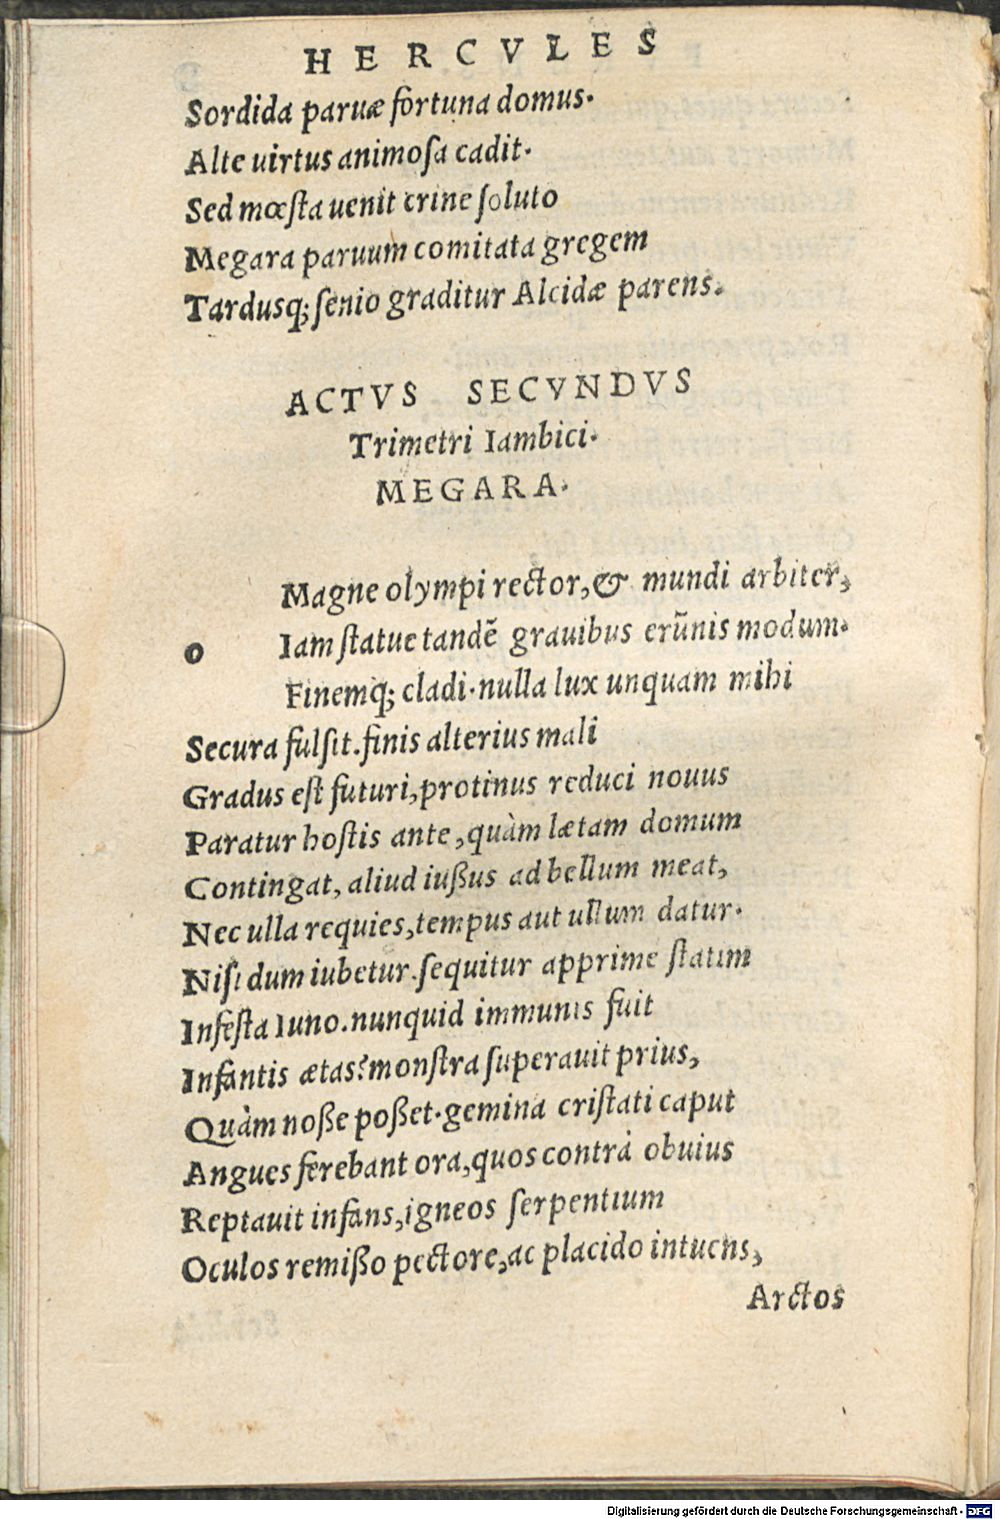 HERCVLES
Sordida paruæ fortuna domus.
Alte uirtus animoſa cadit.
Sed mœſta uenit crine ſoluto
Megara paruum comitata gregem
Tardusq; ſenio graditur Alcidæ parens.
ACTVS SECVNDVS
Trimetri Iambici.
MEGARA.
Magne olympi rector, & mundi arbiter,
o Iam ſtatue tandē grauibus erũnis modum.
Finemq; cladi. nulla lux unquam mihi
Secura fulſit. finis alterius mali
Gradus eſt futuri, protinus reduci nouus
Paratur hoſtis ante, quàm lætam domum
Contingat, aliud iußus ad bellum meat,
Nec ulla requies, tempus aut ullum datur.
Niſi dum iubetur. ſequitur apprime ſtatim
Infeſta Iuno. nunquid immunis fuit
Infantis ætas? monſtra ſuperauit prius,
Quàm noße poßet. gemina criſtati caput
Angues ferebant ora, quos contrà obuius
Reptauit infans, igneos ſerpentium
Oculos remißo pectore, ac placido intuens,
Arctos
Digitalisierung gefördert durch die Deutsche Forschungsgemeinschaft - DFG